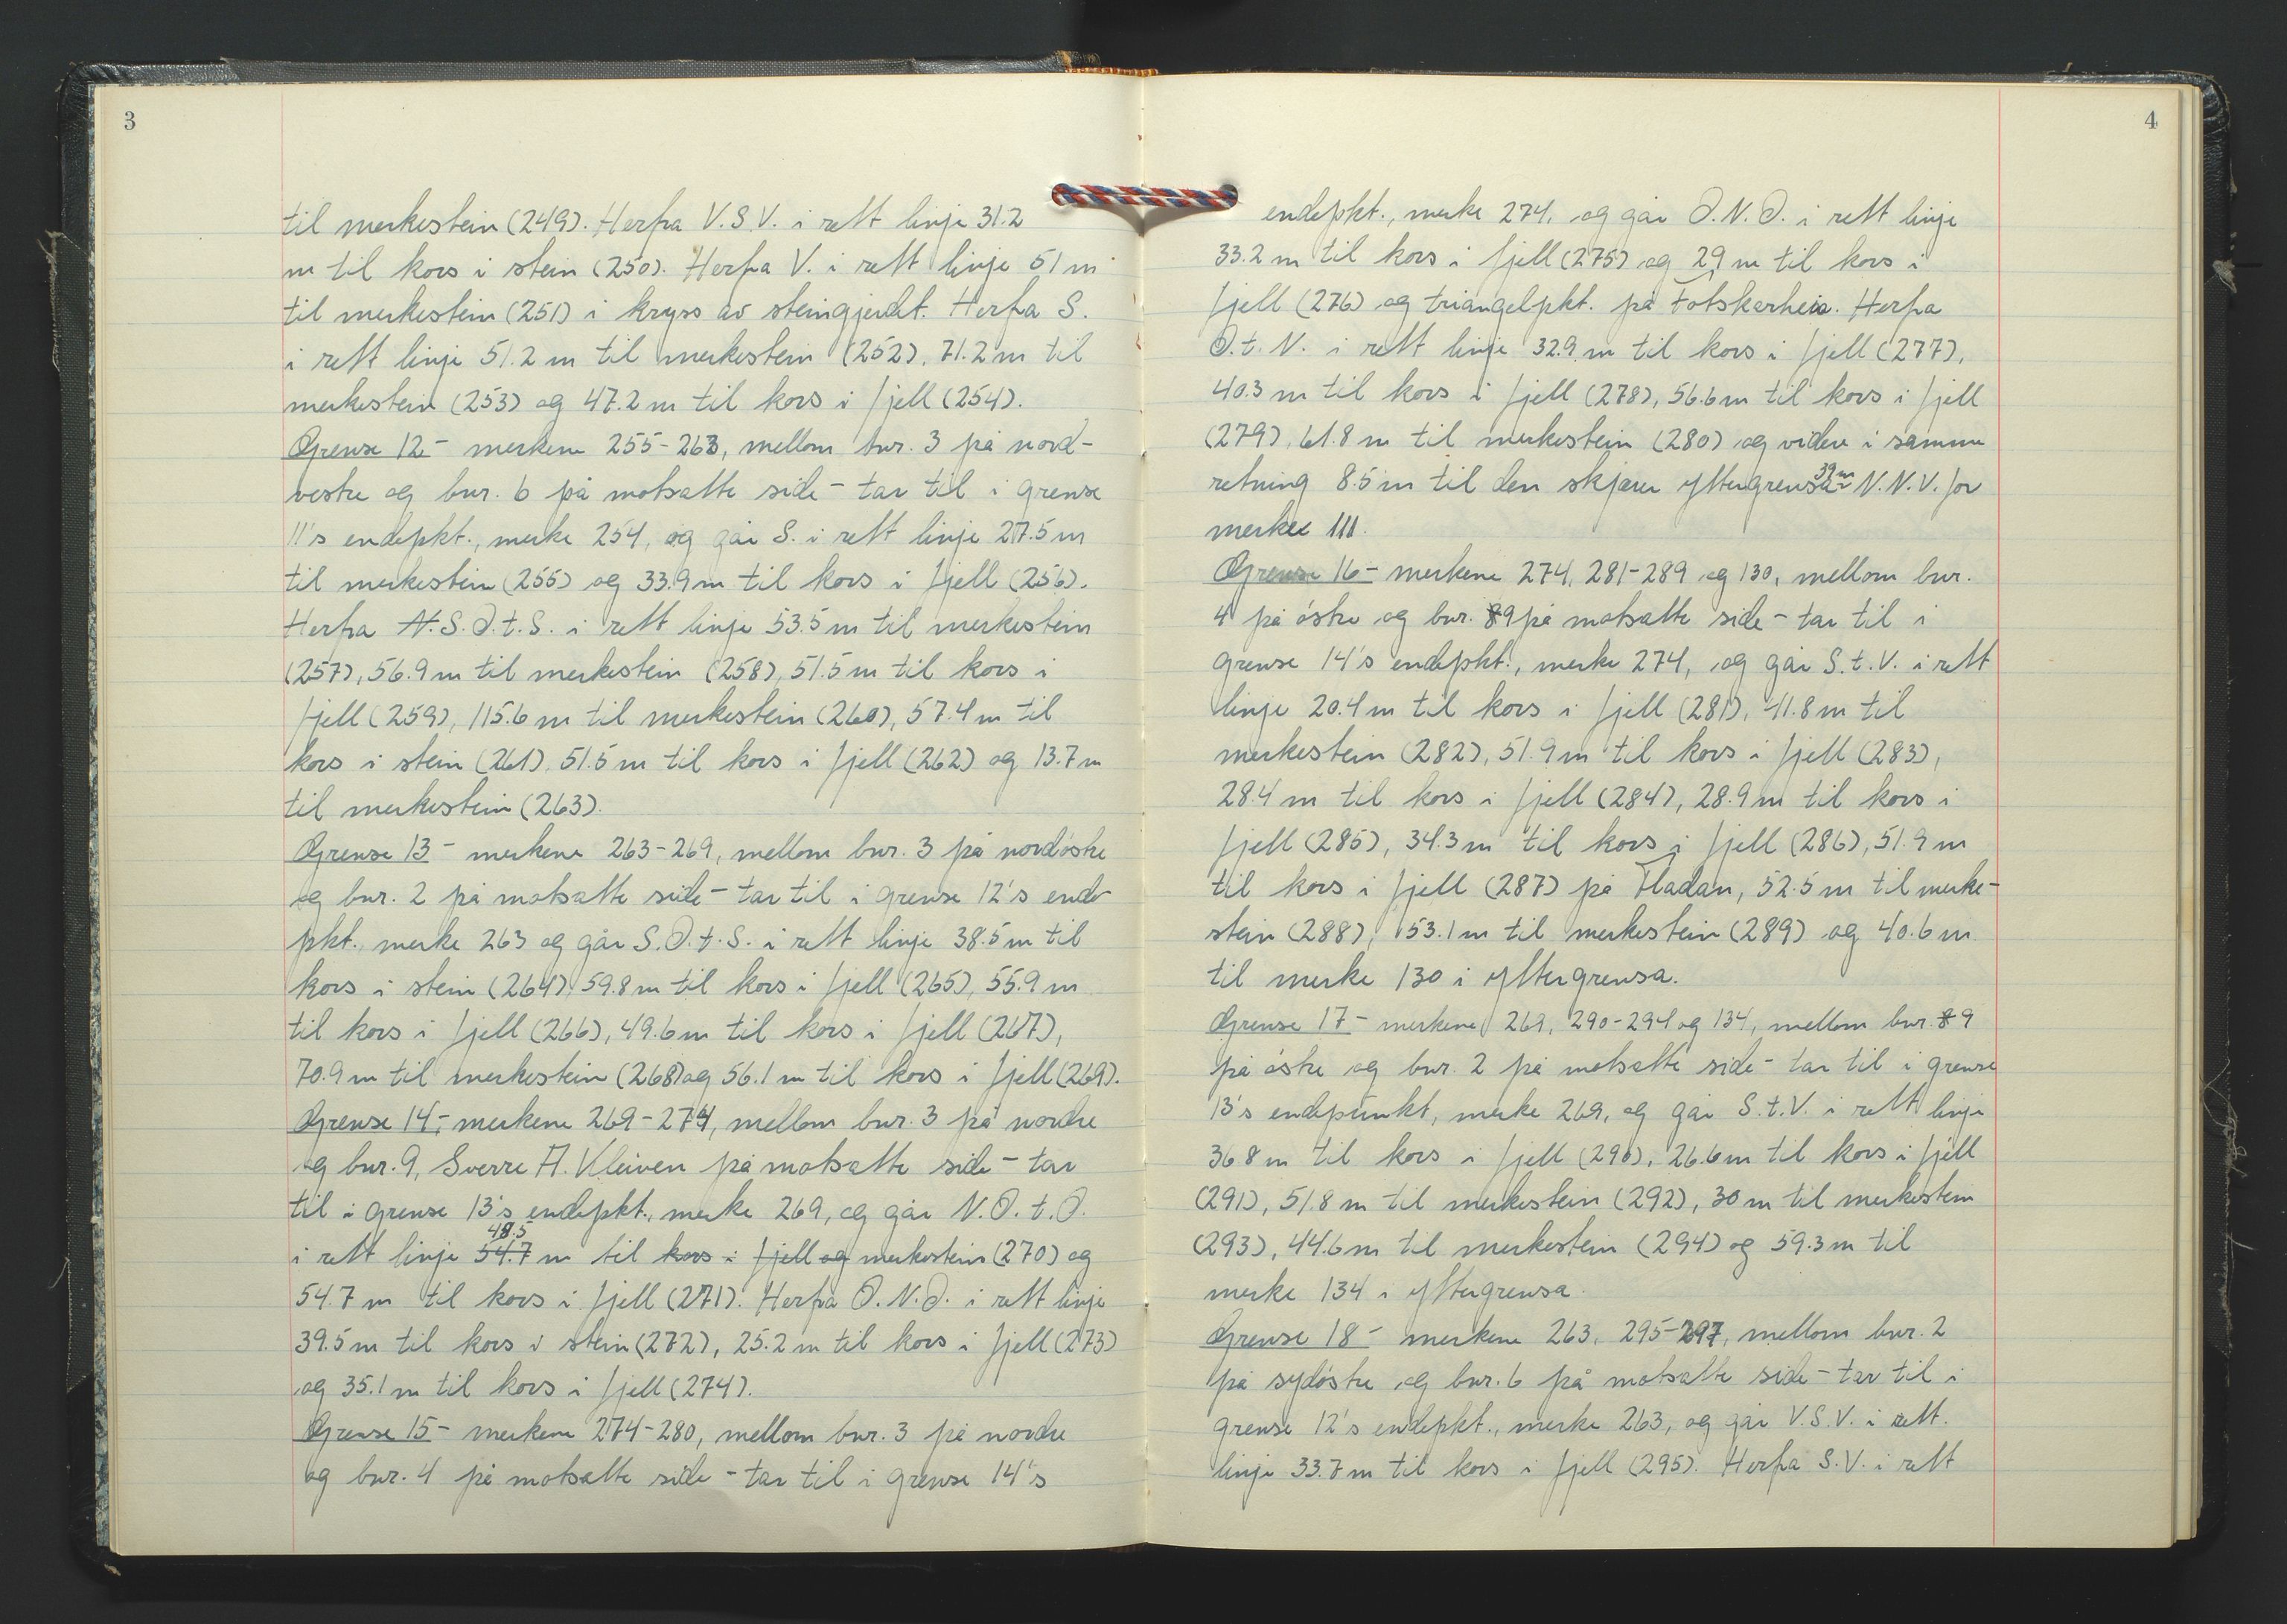 3
til merkestein (249). Herfra V.S.V. i rett linje 31.2
m til kors i stein (250). Herfra V. i rett linje 51 m
til merkestein (251) i kryss av steingjerdet. Herfra S.
i rett linje 51.2 m til merkestein (252), 71.2 m til
merkestein (253) og 47.2 m til kors i fjell (254).
Grense 12 - merkene 255-263, mellom bnr. 3 på nord-
vestre og bnr. 6 på motsatte side - tar til i grense
11's endepkt., merke 254, og går S. i rett linje 27.5 m
til merkestein (255) og 33.9 m til kors i fjell (256).
Herfra N. S.Ø.t.S. i rett linje 53.5 m til merkestein
(257), 56.9 m til merkestein (258), 51.5 m til kors i
fjell (259), 115.6 m til merkestein (260), 57.4 m til
kors i stein (261), 51.5 m til kors i fjell (262) og 13.7 m
til merkestein (263).
Grense 13 - merkene 263-269, mellom bnr. 3 på nordøstre
og bnr. 2 på motsatte side - tar til i grense 12's ende-
pkt., merke 263 og går S.Ø.t.S. i rett linje 38.5 m til
kors i stein (264), 59.8 m til kors i fjell (265), 55.9 m
til kors i fjell (266), 49.6 m til kors i fjell (267),
70.9 m til merkestein (268) og 56.1 m til kors i fjell (269).
Grense 14 - merkene 269-274, mellom bnr. 3 på nordre
og bnr. 9, Sverre A. Kleiven på motsatte side - tar
til i grense 13's endepkt., merke 269, og går N.Ø.t.Ø.
48.5
i rett linje 54.7 m til kors i fjell og merkestein (270) og
54.7 m til kors i fjell (271). Herfra Ø.N.Ø. i rett linje
39.5 m til kors i stein (272), 25.2 m til kors i fjell (273)
og 35.1 m til kors i fjell (274).
Grense 15 - merkene 274-280, mellom bnr. 3 på nordre
og bnr. 4 på motsatte side - tar til i grense 14's
4
endepkt., merke 274, og går Ø.N.Ø. i rett linje
33.2 m til kors i fjell (275) og 29 m til kors i
fjell (276) og triangelpkt. på Fotskarheia. Herfra
Ø.t.N. i rett linje 32.9 m til kors i fjell (277),
40.3 m til kors i fjell (278), 56.6 m til kors i fjell
(279), 61.8 m til merkestein (280) og videre i samme
39 m
retning 8.5 m til den skjærer yttergrensa N.N.V. for
merke 111.
Grense 16 - merkene 274, 281-289 og 130, mellom bnr.
4 på østre og bnr. 8 9 på motsatte side - tar til i
grense 14's endepkt., merke 274, og går S.t.V. i rett
linje 20.4 m til kors i fjell (281), 41.8 m til
merkestein (282), 51.9 m til kors i fjell (283),
28.4 m til kors i fjell (284), 28.9 m til kors i
fjell (285), 34.3 m til kors i fjell (286), 51.9 m
til kors i fjell (287) på Fladan, 52.5 m til merke-
stein (288), 53.1 m til merkestein (289) og 40.6 m
til merke 130 i yttergrensa.
Grense 17 - merkene 269, 290-294 og 134, mellom bnr. 8 9
på østre og bnr. 2 på motsatte side - tar til i grense
13's endepunkt, merke 269, og går S.t.V. i rett linje
36.8 m til kors i fjell (290), 26.6 m til kors i fjell
(291), 51.8 m til merkestein (292), 30 m til merkestein
(293), 44.6 m til merkestein (294) og 59.3 m til
merke 134 i yttergrensa.
Grense 18 - merkene 263, 295-297, mellom bnr. 2
på sydøstre og bnr. 6 på motsatte side - tar til i
grense 12's endepkt., merke 263, og går V.S.V. i rett.
linje 33.7 m til kors i fjell (295). Herfra S.V. i rett